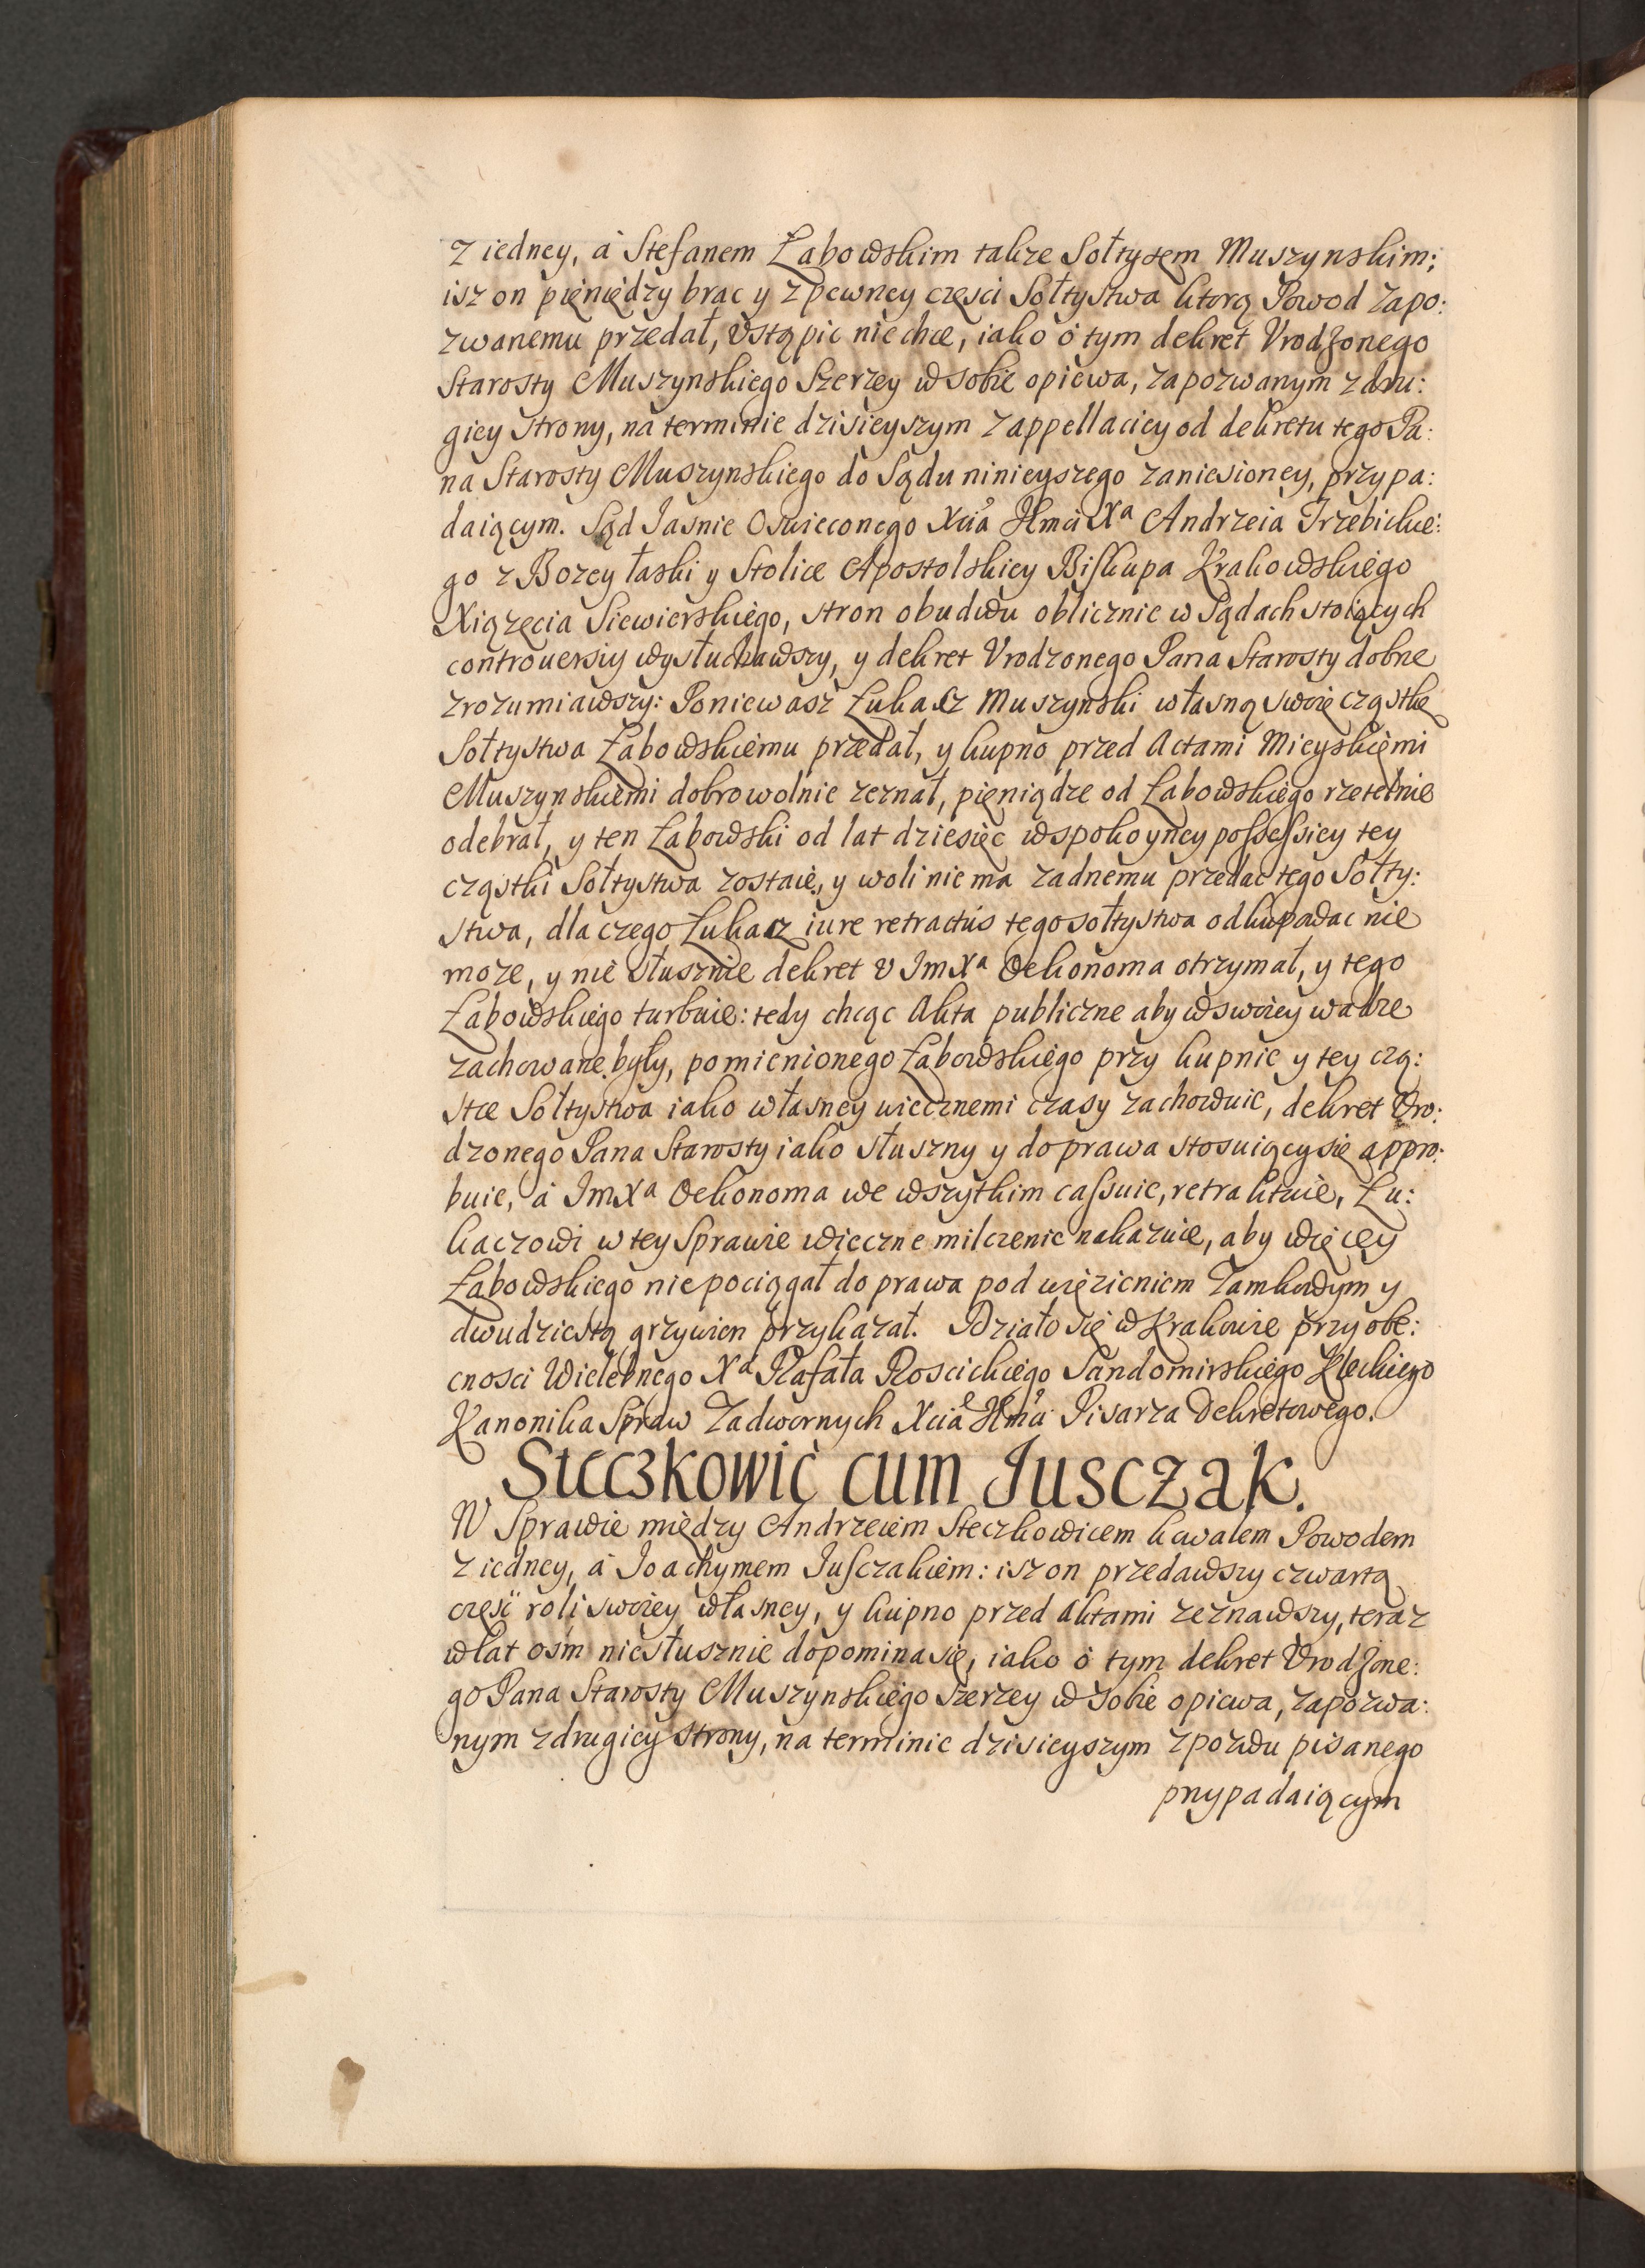 z iedney, á Stefanem Łabowskim takze Sołtysem Muszynskim;
isz on pięniędzy brac y z pewney częsci Sołtystwa ktorą Powod zapo:
zwanemu przedał, Vstąpic niechce, iako ó tym dekret Vrodzonego
Starosty Muszynskiego Szerzey w sobie opiewa, zapozwanym z dru:
giey strony, na terminie dzisieyszym z appellaciey od dekretu tego Pa:
na Starosty Muszynskiego do Sądu ninieyszego zaniesioney, przypa:
daiącym. Sąd Jasnie Oswieconego Xcia Jmci Xa Andrzeia Trzebickie:
go z Bozey łaski y Stolice Apostolskiey Biskupa Krakowskiego
Xiązęcia Siewierskiego, stron obudwu oblicznie w Sądach stoiących
controuersiy wysłuchawszy, y dekret Vrodzonego Pana Starosty dobrze
zrozumiawszy: Poniewasz Łukacz Muszynski własną swoię cząstkę
Sołtystwa Łabowskiemu przedał, y kupno przed Actami Mieyskiemi
Muszynskiemi dobrowolnie zeznał, pięniądze od Łabowskiego rzetelnie
odebrał, y ten Łabowski od lat dziesięc w spokoyney possessiey tey
cząstki Sołtystwa zostaie, y woli nie ma zadnemu przedac tego Sołty:
stwa, dla czego Łukacz iure retractus tego sołtystwa odkupowac nie
moze, y nie słusznie dekret v JmXa Oekonoma otrzymał, y tego
Łabowskiego turbuie: tedy chcąc Akta publiczne aby w swoiey wadze
zachowane były, pomienionego Łabowskiego przy kupnie y tey czą:
stce Sołtystwa iako własney wiecznemi czasy zachowuie, dekret Vro:
dzonego Pana Starosty iako słuszny y do prawa stosuiący się appro:
buie, á JmXa Oekonoma we wszytkim cassuie, retraktuie, Łu:
kaczowi w tey Sprawie wieczne milczenie nakazuie, aby więcey
Łabowskiego nie pociągał do prawa pod więzieniem Zamkowym y
dwudziestą grzywien przykazał. Działo się w Krakowie przy obe:
cnosci Wielebnego Xa Rafała Roscickiego Sandomirskiego Kleckiego
Kanonika Spraw Zadwornych Xcia Jmci Pisarza Dekretowego.
Steczkowic cum Jusczak.
W Sprawie między Andrzeiem Steczkowicem kowalem Powodem
z iedney, á Joachymem Jusczakiem: isz on przedawszy czwartą
częsc roli swoiey własney, y kupno przed Aktami zeznawszy, teraz
w lat osm niesłusznie dopomina się, iako ó tym dekret Vrodzone:
go Pana Starosty Muszynskiego Szerzey w sobie opiewa, zapozwa:
nym z drugiey strony, na terminie dzisieyszym z pozwu pisanego
przypadaiącym